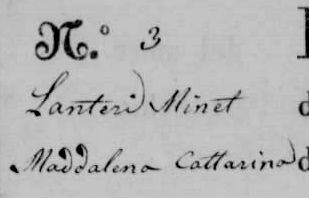 N.º 3
Lanteri Minet
Maddalena Cattarina d